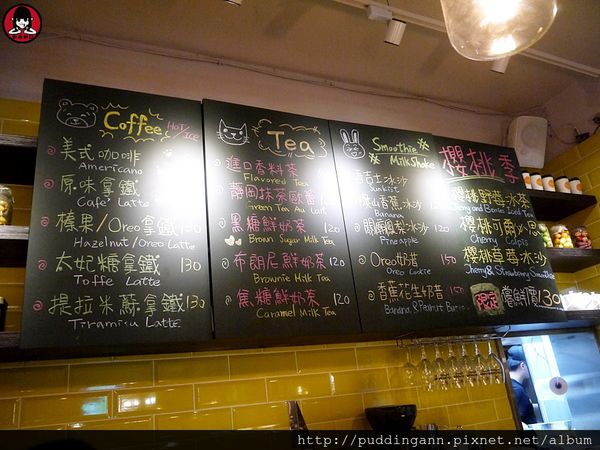 Coffee HOT/ICE
美式咖啡
Americano
原味拿鐵
Cafe' Latte
榛果/Oreo拿鐵 130
Hazelnut/Oreo Latte
太妃糖拿鐵 130
Toffe Latte
提拉米蘇拿鐵 130
Tiramisu Latte
Tea
進口香料茶
Flavored Tea
靜岡抹茶歐蕾
Green Tea Au Lait
黑糖鮮奶茶
Brown Sugar Milk Tea
布朗尼鮮奶茶 120
Brownie Milk Tea
焦糖鮮奶茶 120
Caramel Milk Tea
Smoothie
MilkShake
香吉士冰沙
Sunkist
香蕉冰沙 120
Banana
鳳梨冰沙 120
Pineapple
Oreo奶昔 120
Oreo Cookie
香蕉花生奶昔
Banana & Peanut Butter
櫻桃季
櫻桃野莓冰茶
Cherry and Berries Iced Tea
櫻桃可爾必思
Cherry Calpis
櫻桃草莓冰沙
Cherry & Strawberry Smoothie
限定 嚐鮮價130
http://puddingann.pixnet.net/album